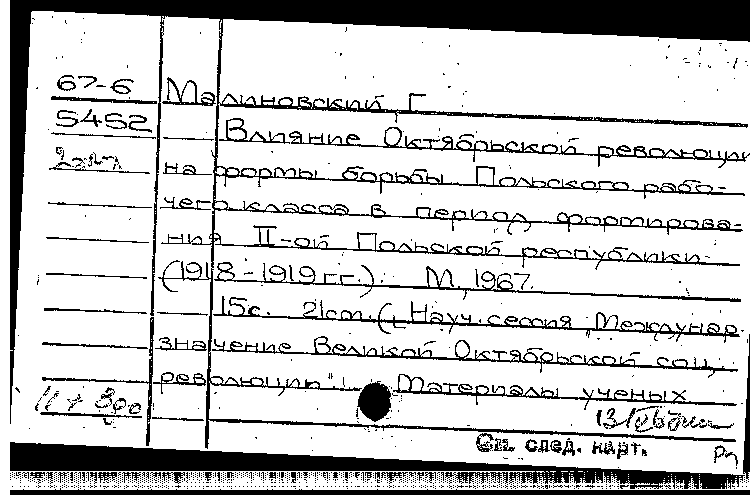 67-6 Малиновский, Г.
5452 Влияние Октябрьской революции
на формы борьбы Польского рабо-
чего класса в период формирова-
ния II-ой Польской республики
(1918-1919 гг.). М., 1967.
15с. 21см. (Науч. сессия "Междунар.
значение Великой Октябрьской соц.
революции". Материалы ученых
11 + 300
См. след. карт.